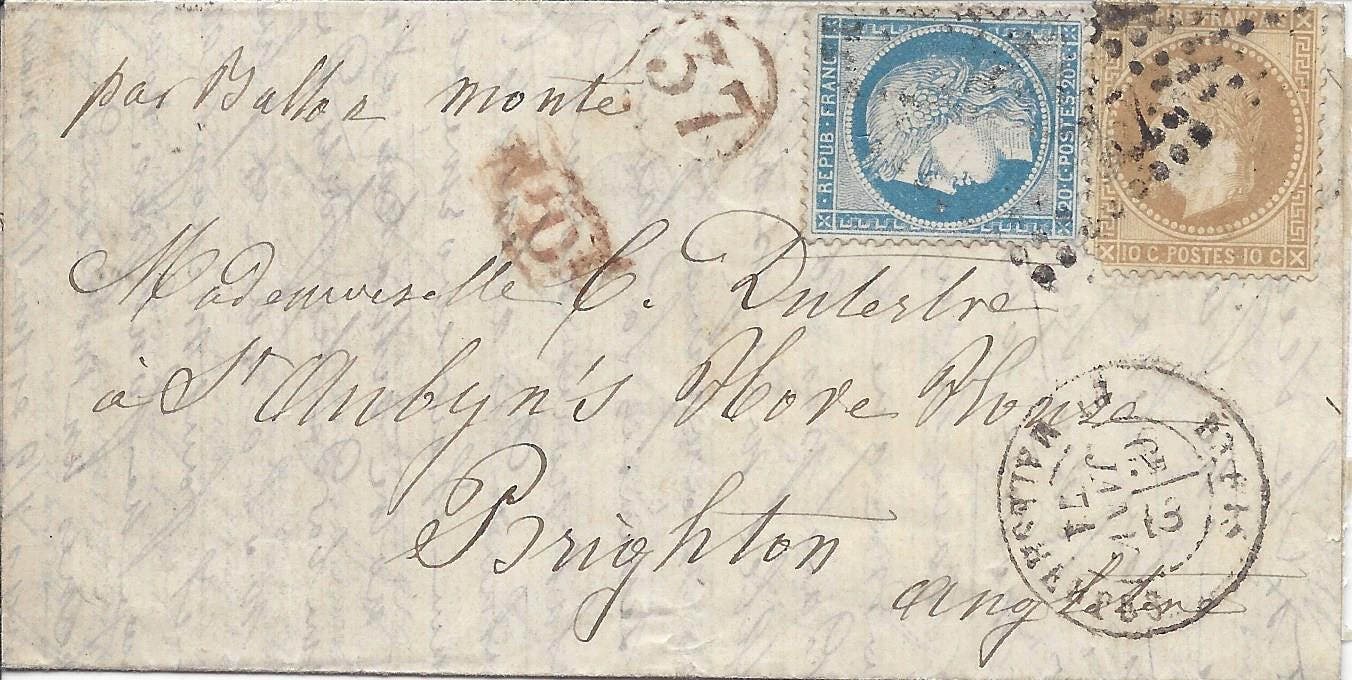 par Ballon monté
37
P.D.
REPUB. FRANC
20·C·POSTES·20·C
10 C POSTES·10 C
1
Mademoiselle C. Dutertre
à St Aubyn's Hove House
Brighton
Angleterre
PL. MALESHERBES
JANV.
71